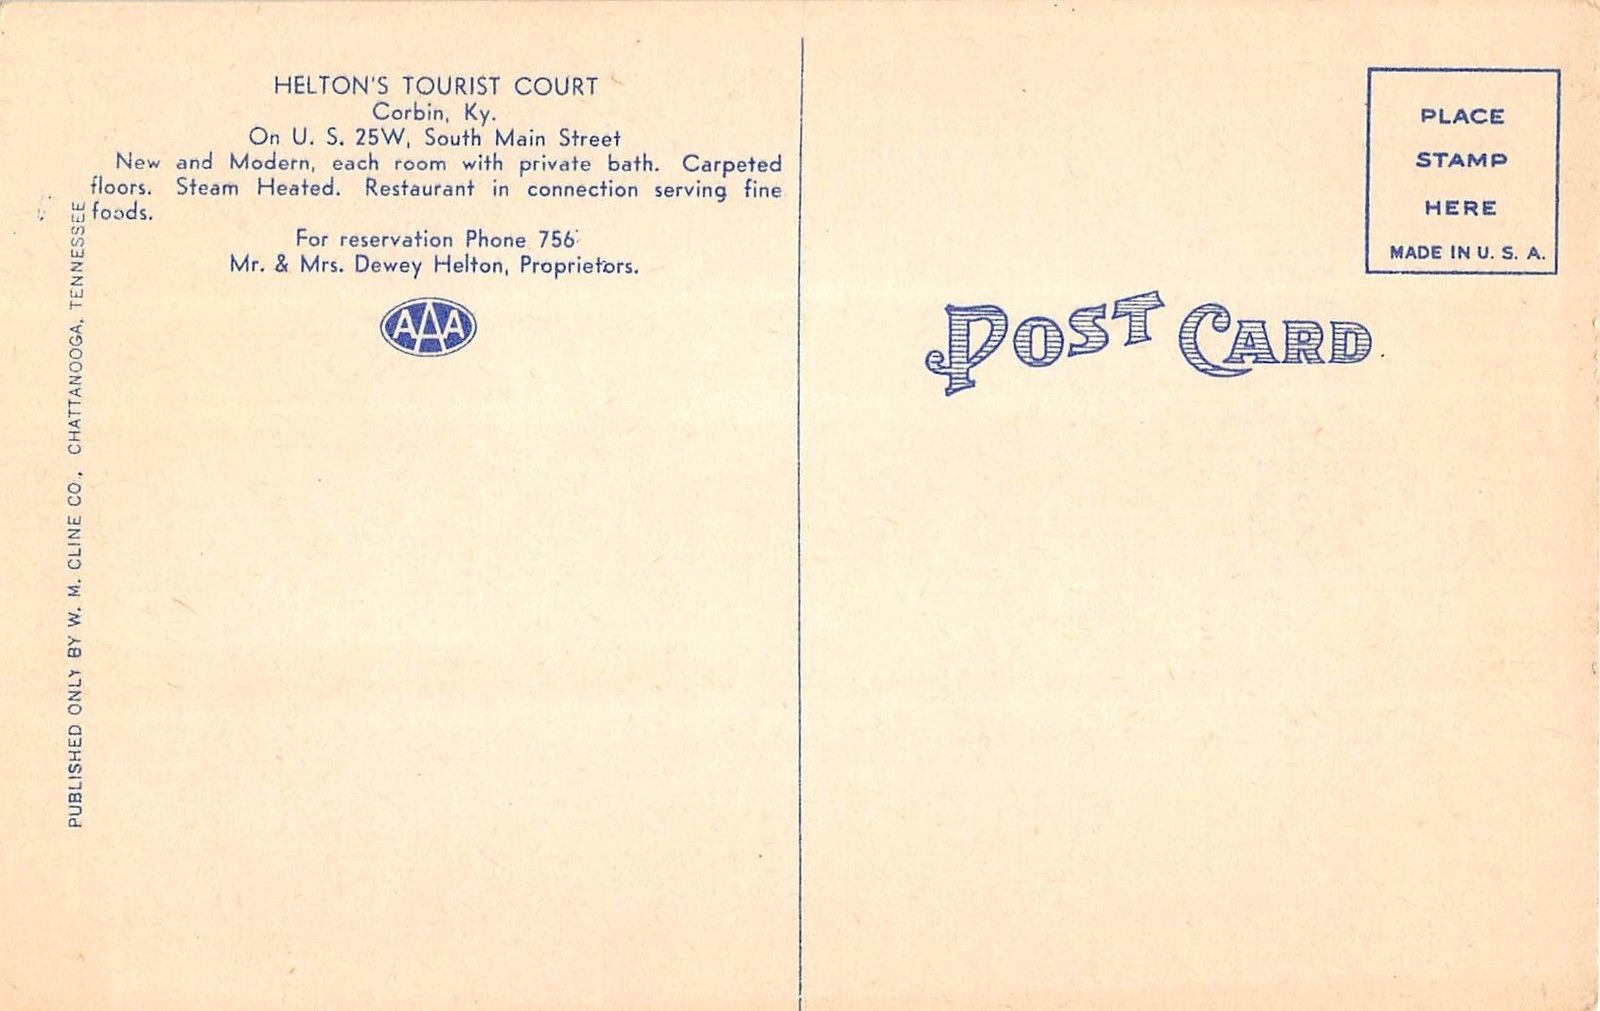 HELTON'S TOURIST COURT
Corbin, Ky.
On U. S. 25W, South Main Street
New and Modern, each room with private bath. Carpeted
floors. Steam Heated. Restaurant in connection serving fine
foods.
For reservation Phone 756
Mr. & Mrs. Dewey Helton, Proprietors.
AAA
PUBLISHED ONLY BY W. M. CLINE CO., CHATTANOOGA, TENNESSEE
PLACE
STAMP
HERE
MADE IN U. S. A.
POST CARD